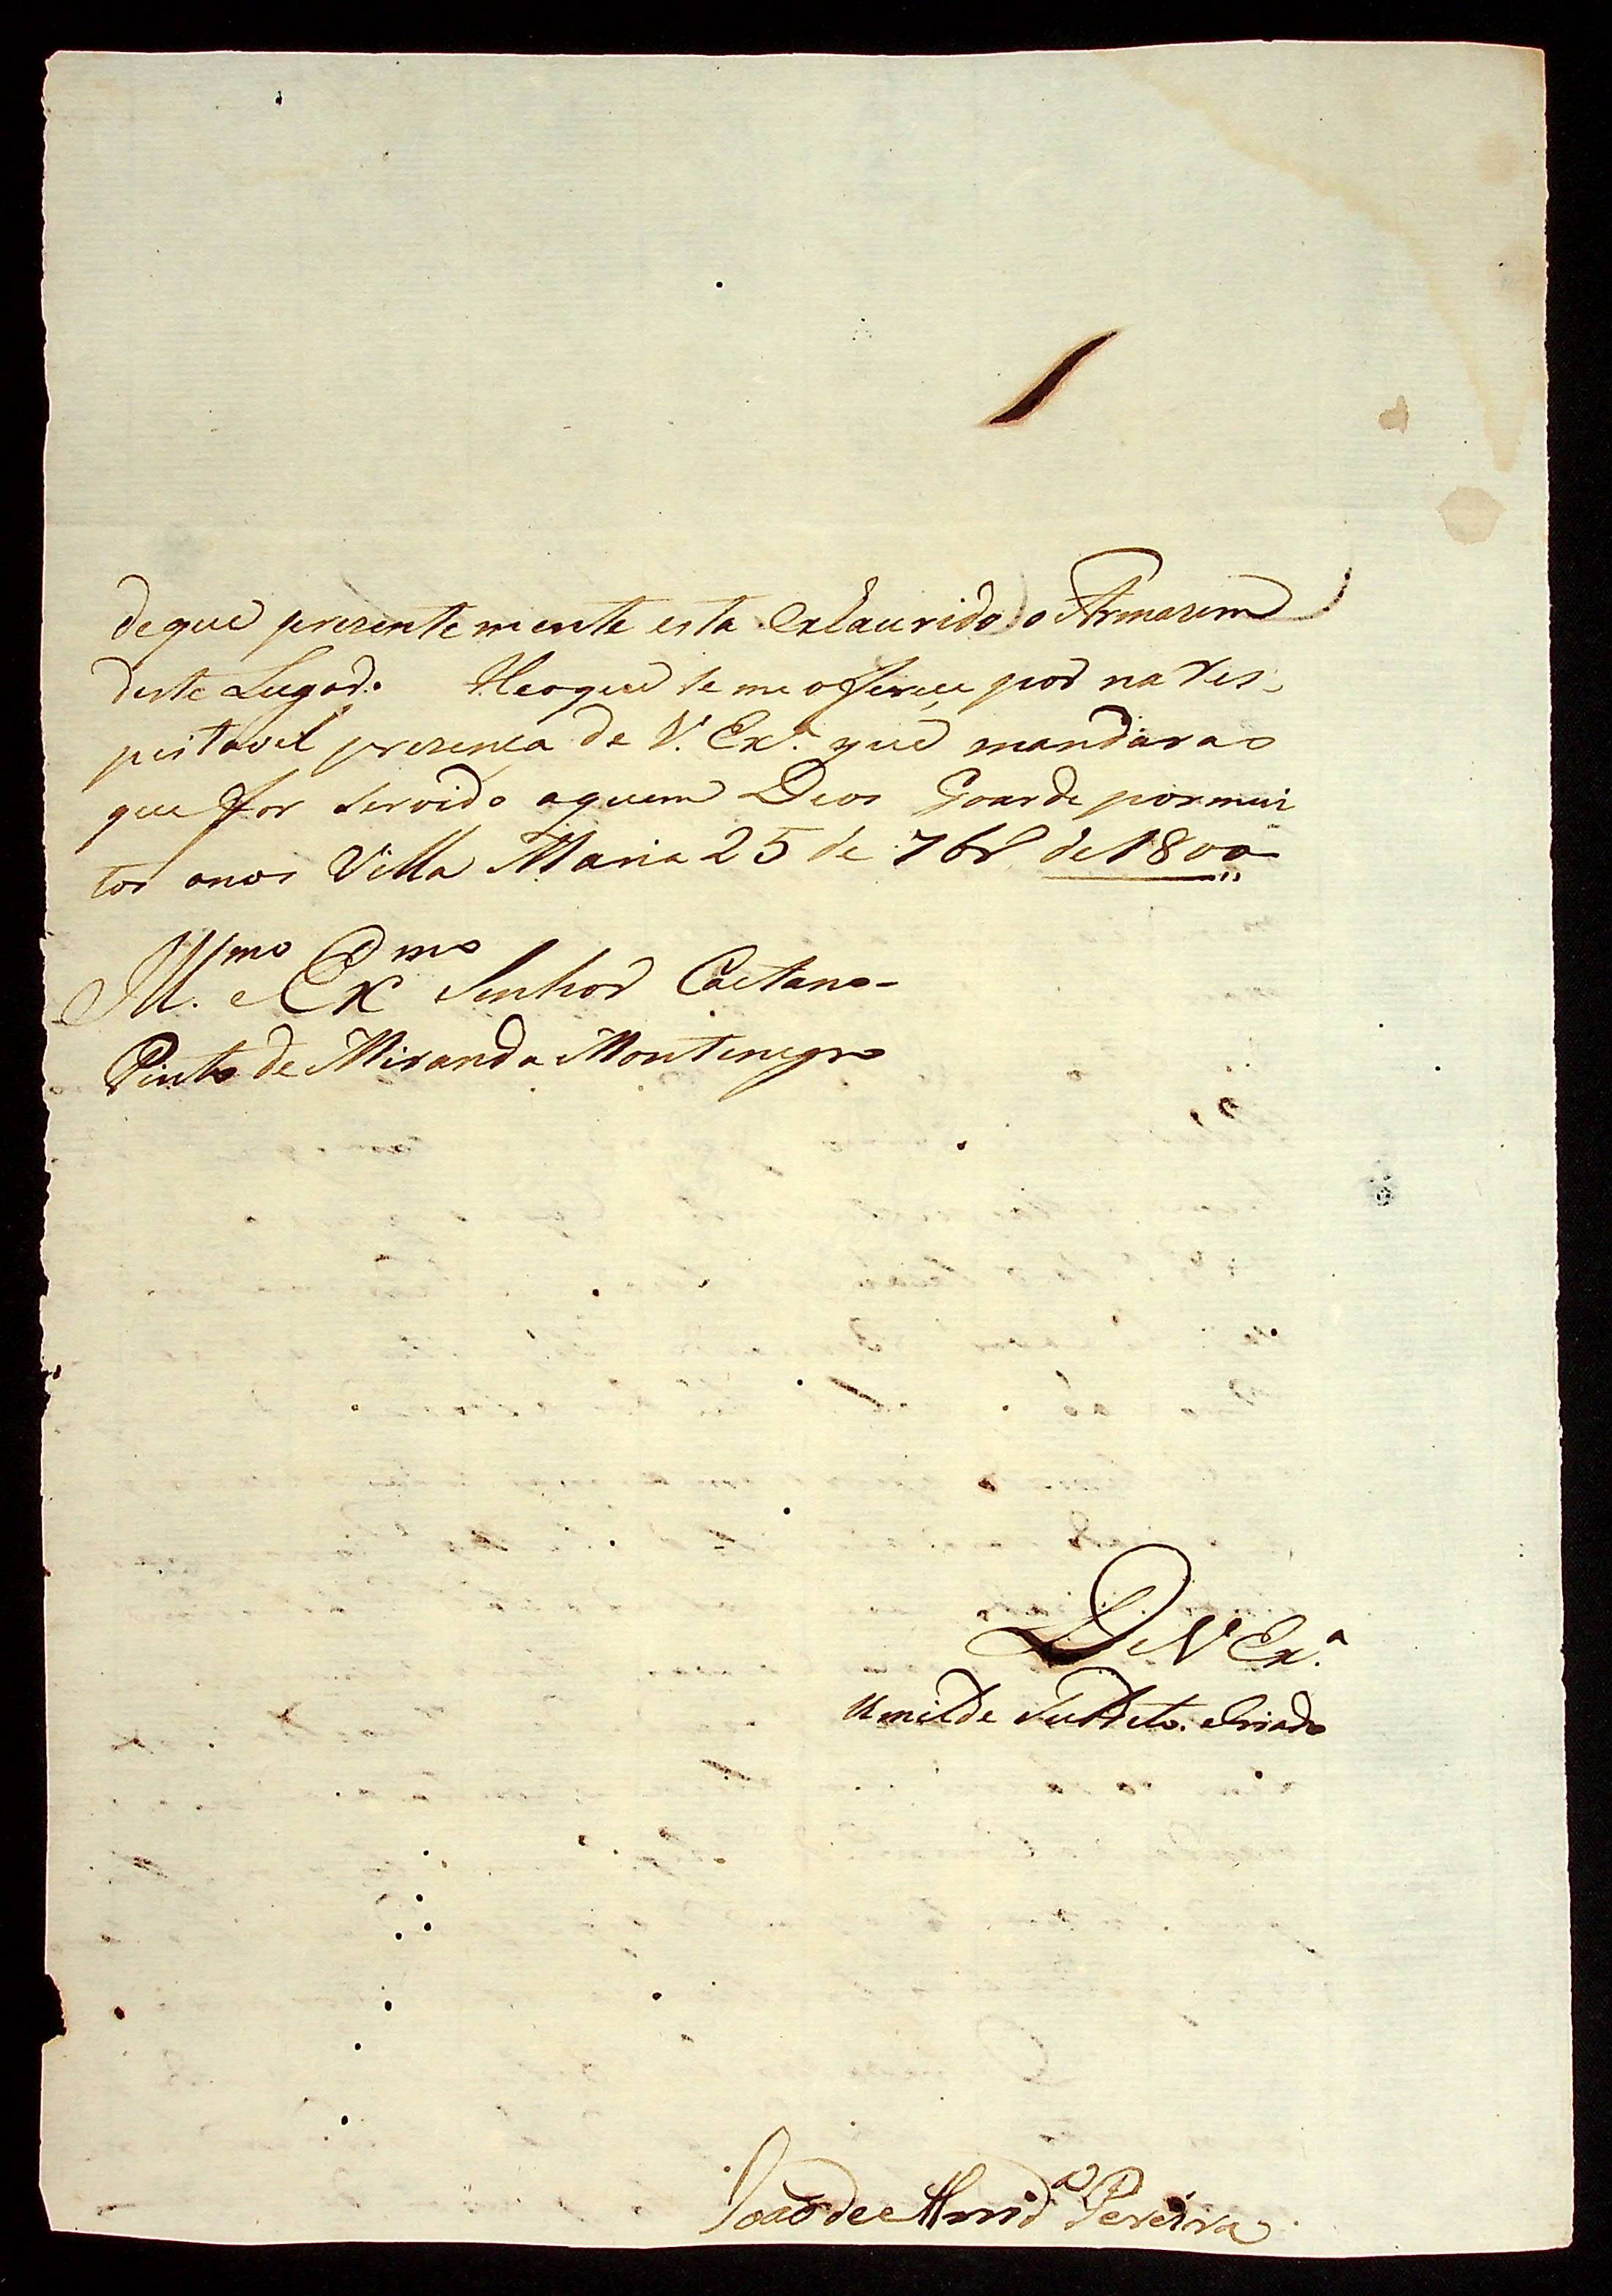 deque prezentemente esta exlaurido o Armazem
deste Lugar. Heoque se me offerece por na Res,
peitavel prezença de V. Exª que mandara o
que for servido aquem Deos Goarde por mui
tos anos Villa Maria 25 de 7br de 1800
Illmo e Exmo Senhor Caetano
Pinto de Miranda Montenegro
De V Exª
Umilde Subdeto. e Criado
João de Almdª Pereira